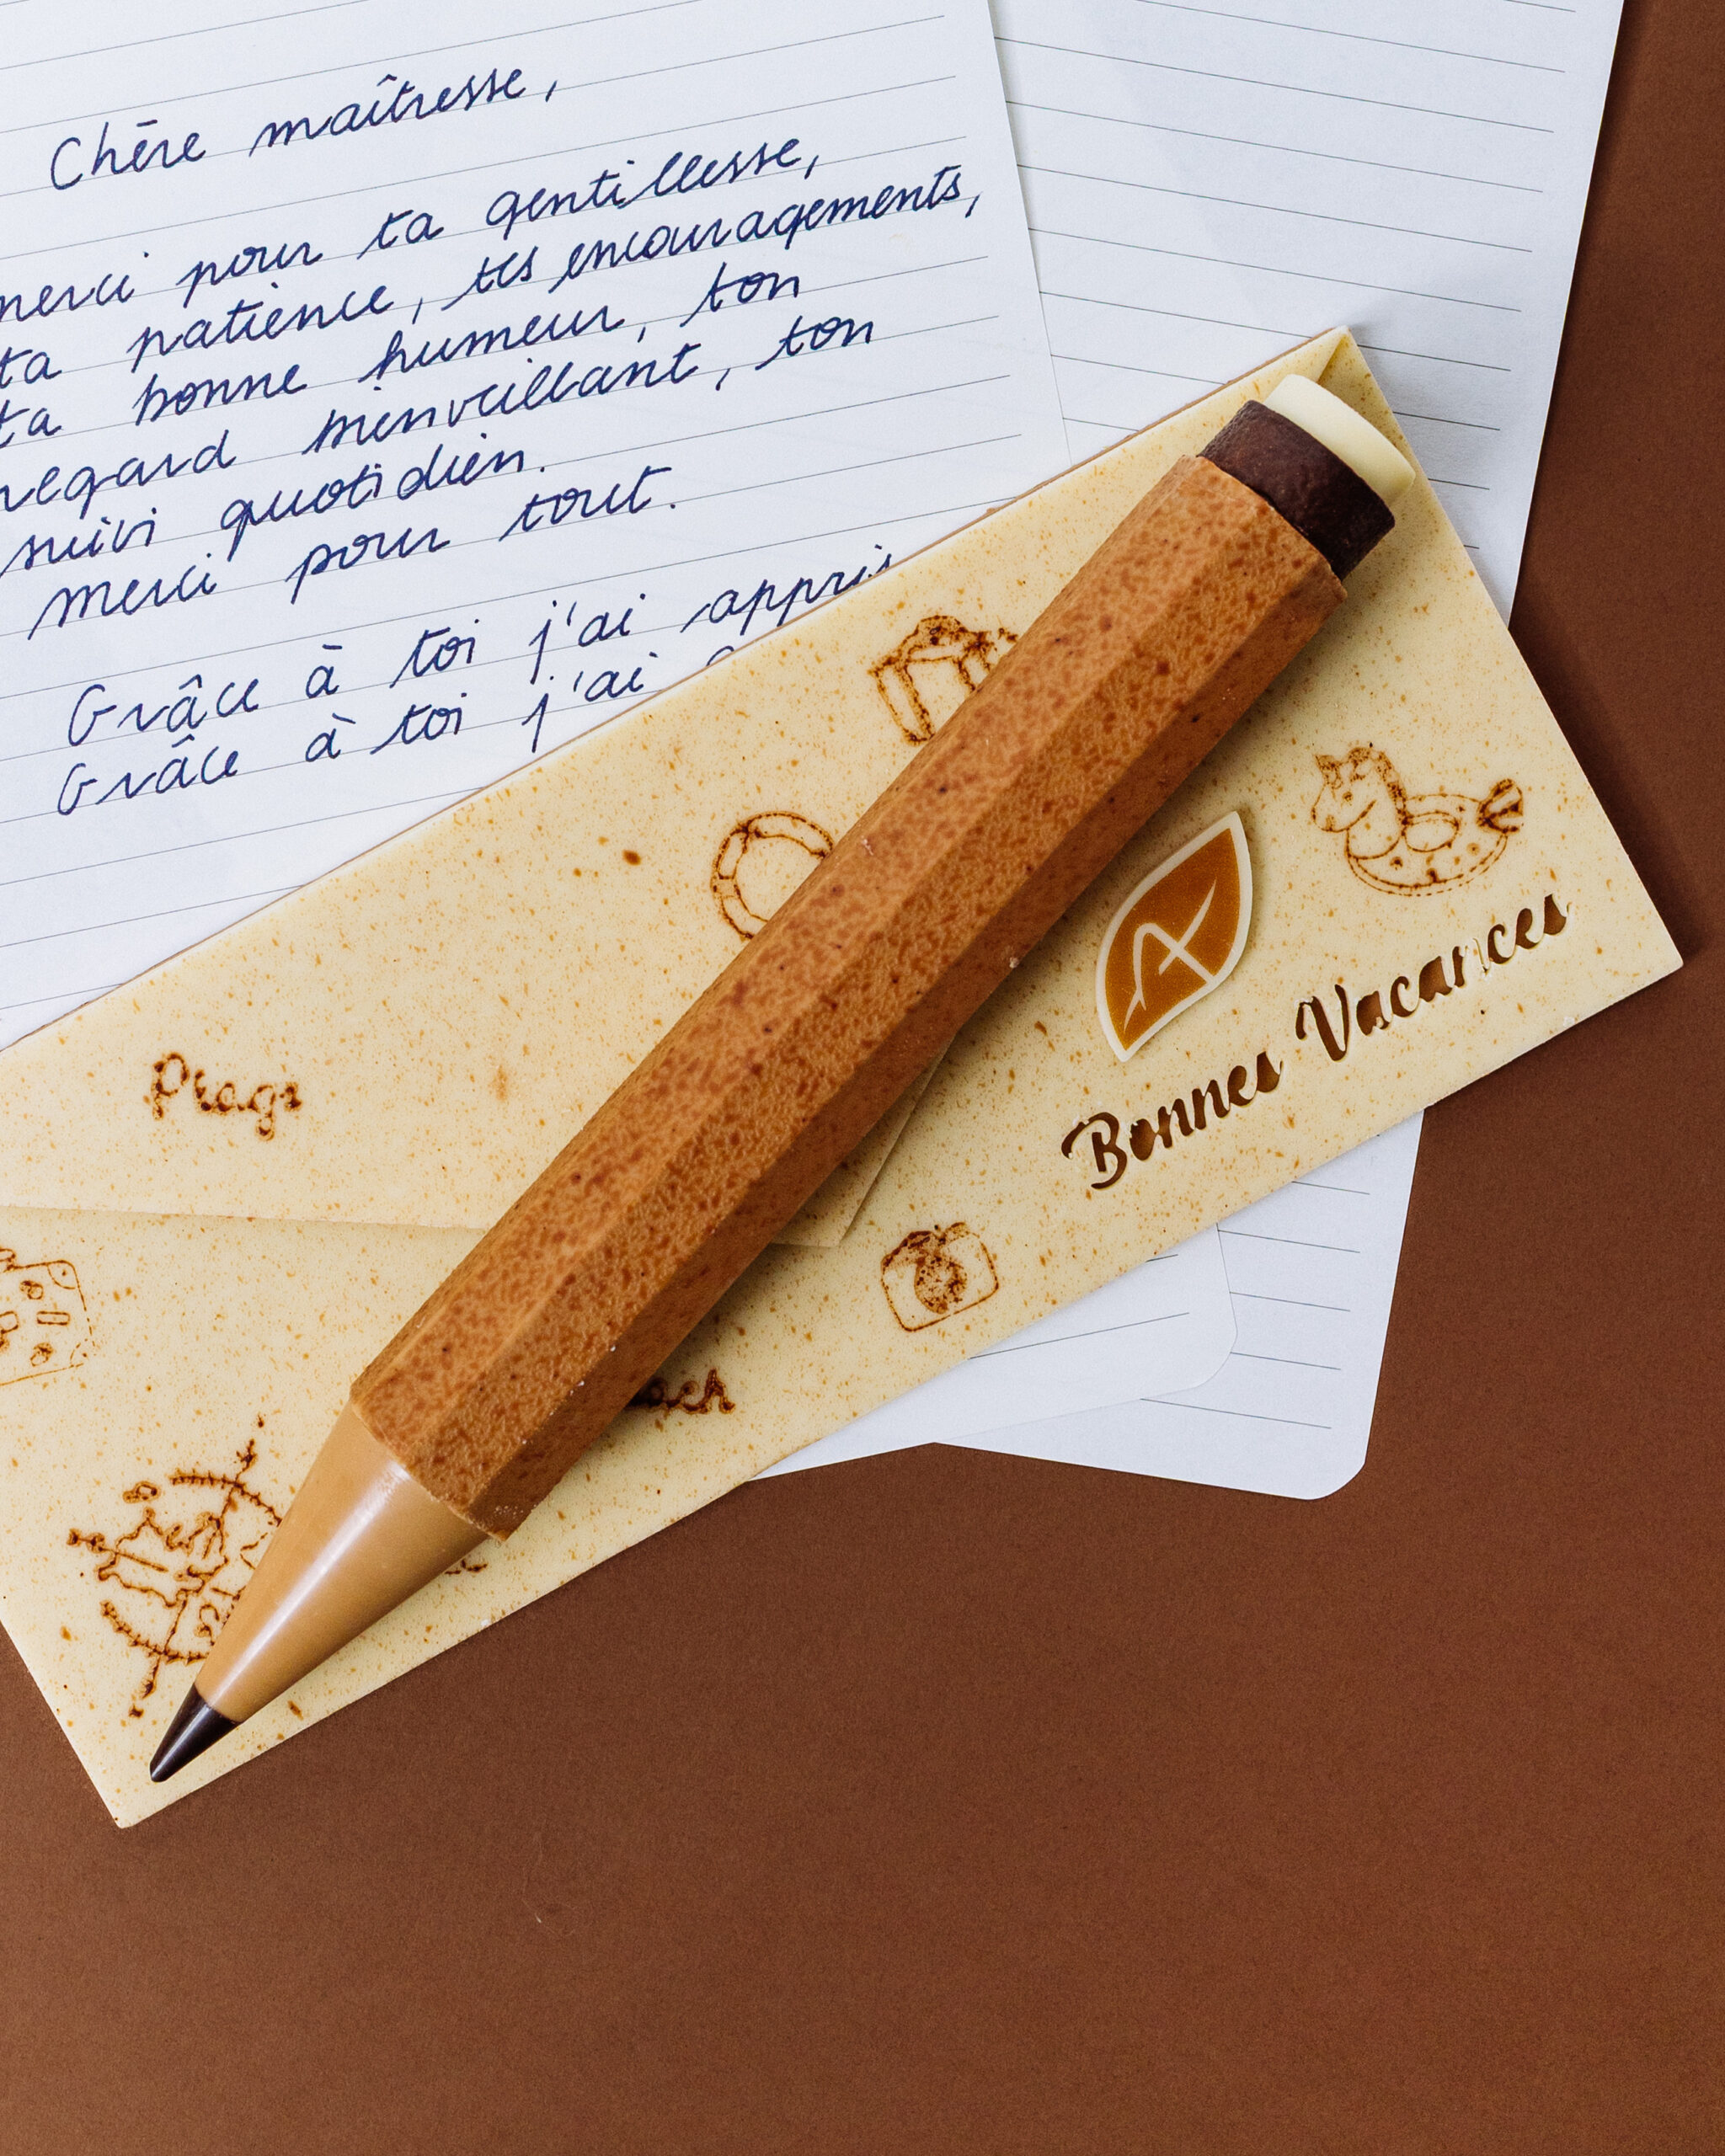 Chère maîtresse,
merci pour ta gentillesse,
ta patience, tes encouragements,
ta bonne humeur, ton
regard bienveillant, ton
suivi quotidien.
Merci pour tout.
Grâce à toi j'ai appris
Grâce à toi j'ai
Bonnes Vacances